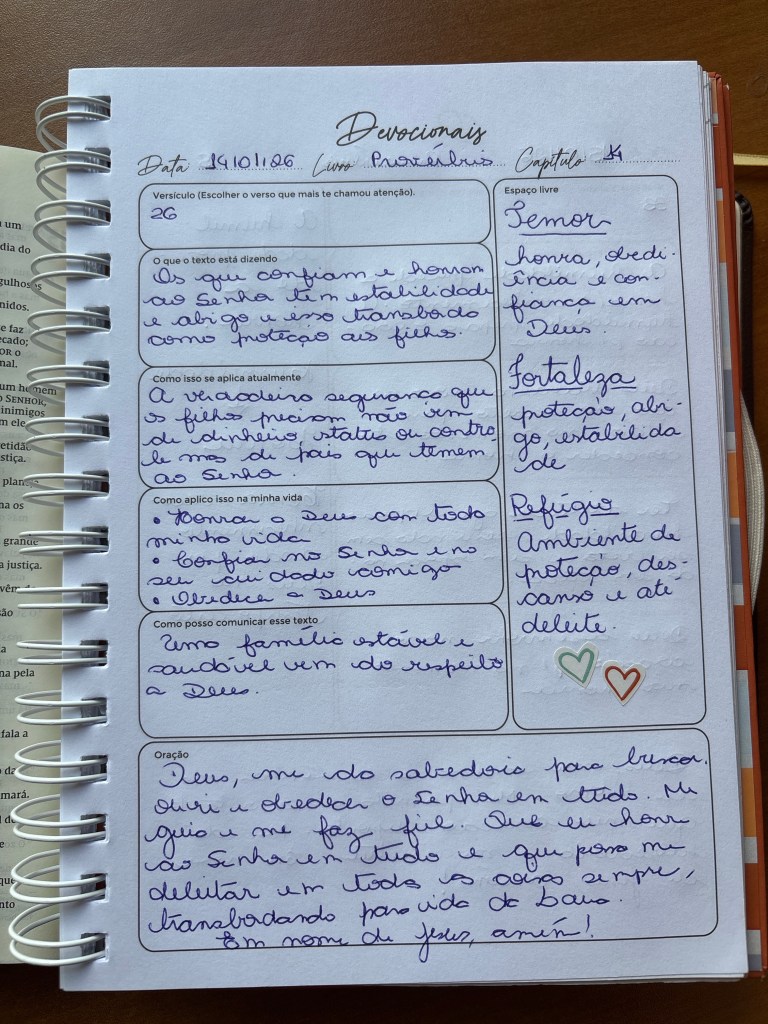 Devocionais
Data 14/01/26 Livro Provérbios Capítulo 14
Versículo (Escolher o verso que mais te chamou atenção).
26
O que o texto está dizendo
Os que confiam e honram
ao Senhor tem estabilidade
e abrigo e isso transborda
como proteção aos filhos.
Como isso se aplica atualmente
A verdadeira segurança que
os filhos precisam não vem
de dinheiro, status ou contro
le mas de pais que temem
ao Senhor.
Como aplico isso na minha vida
• Honrar a Deus com toda
minha vida
• Confiar no Senhor e no
seu cuidado comigo
• Obedecer a Deus
Como posso comunicar esse texto
Uma família estável e
saudável vem do respeito
a Deus.
Espaço livre
Temor
honra, obedi-
ência e con-
fiança em
Deus.
Fortaleza
proteção, abri-
go, estabilida
de
Refúgio
Ambiente de
proteção, des-
canso e até
deleite.
Oração
Deus, me da sabedoria para buscar,
ouvir e obedecer o Senhor em tudo. Me
guia e me faz fiel. Que eu honre
ao Senhor em tudo e que possa me
deleitar em todas as coisas sempre,
transbordando para vida do
Em nome de Jesus, amém!
um
dia do
gulhosos
nidos.
e faz
ecado;
OR o
nal.
um homem
o SENHOR,
inimigos
m ele.
etidão
stiça.
plane
na os
grande
a justiça.
são
a
na pela
fala a
o da
mará.
que
nto